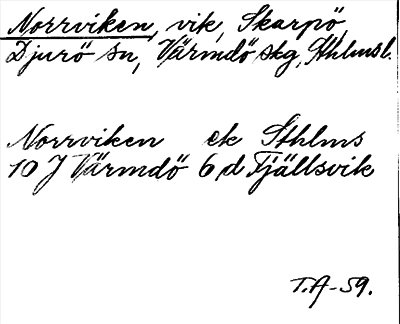 Norrviken, vik, Skarpö,
Djurö sn, Värmdö skg, Sthlmsl.
Norrviken ek Sthlms
10 J Värmdö 6 d Fjällsvik
T.A-59.